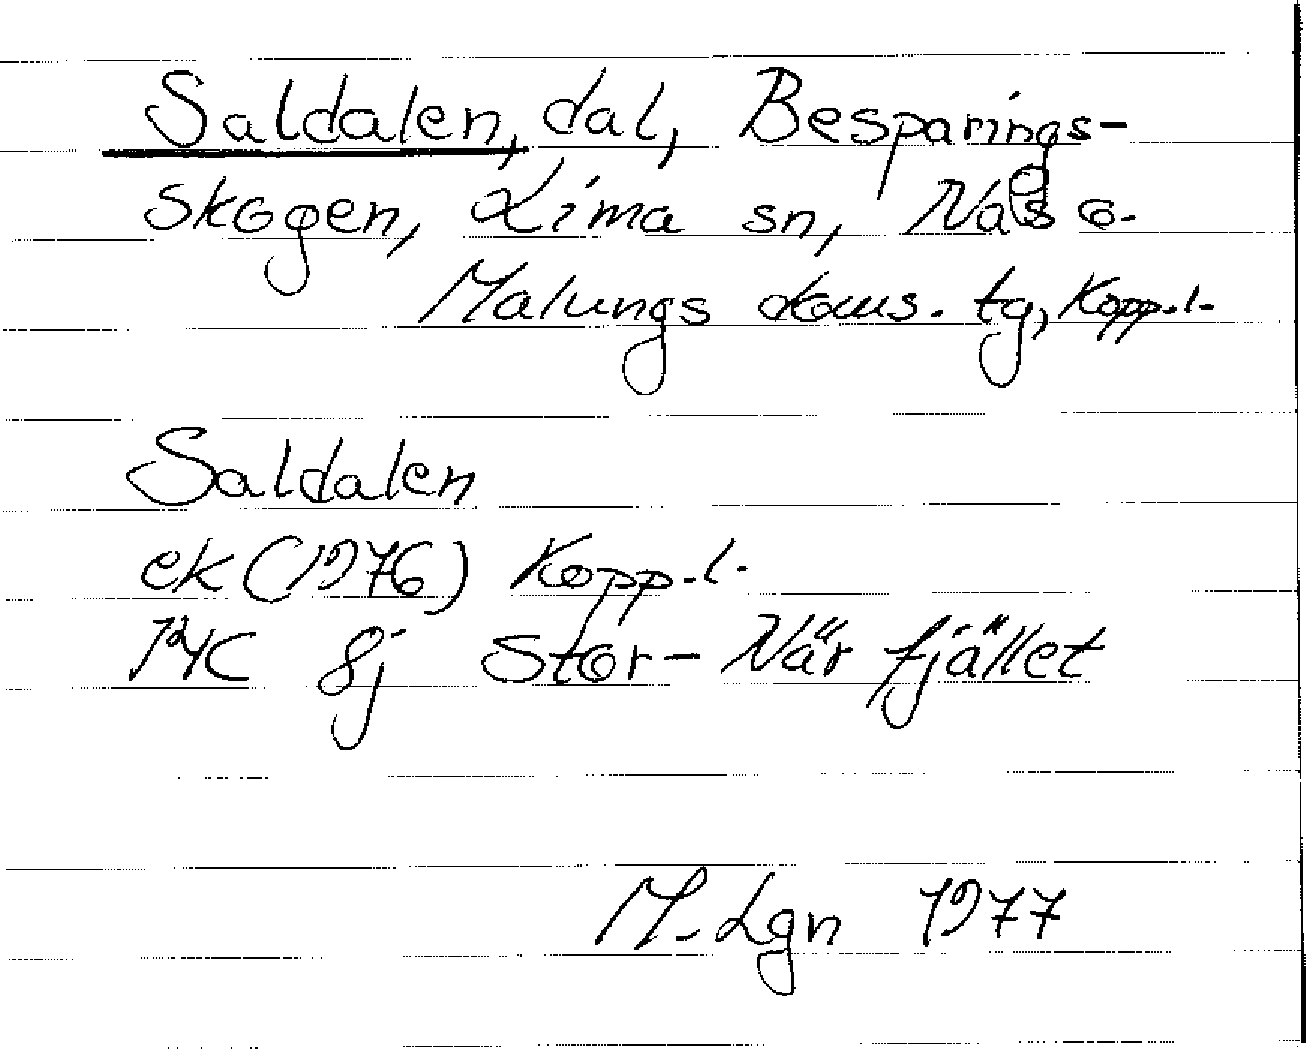 Saldalen, dal, Besparings-
skogen, Lima sn, Nås o.
Malungs doms. tg, Kopp.l.
Saldalen
ek (1976) Kopp.l.
14C 8j Stor-Närfjället
M. Lgn 1977